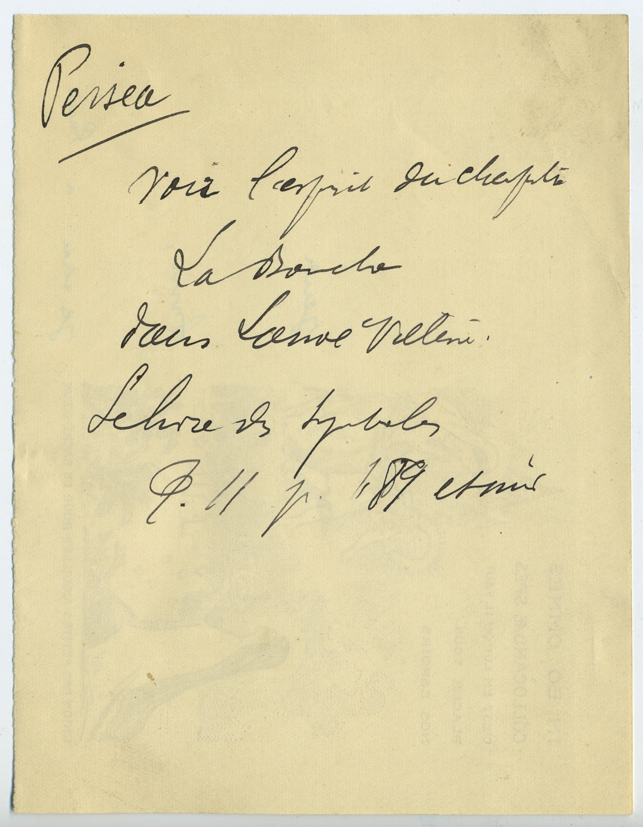 Persea
Voir l'esprit du chapitre
La Bouche
dans Lanoë Villène.
Le livre des Symboles
p. 189 et suiv